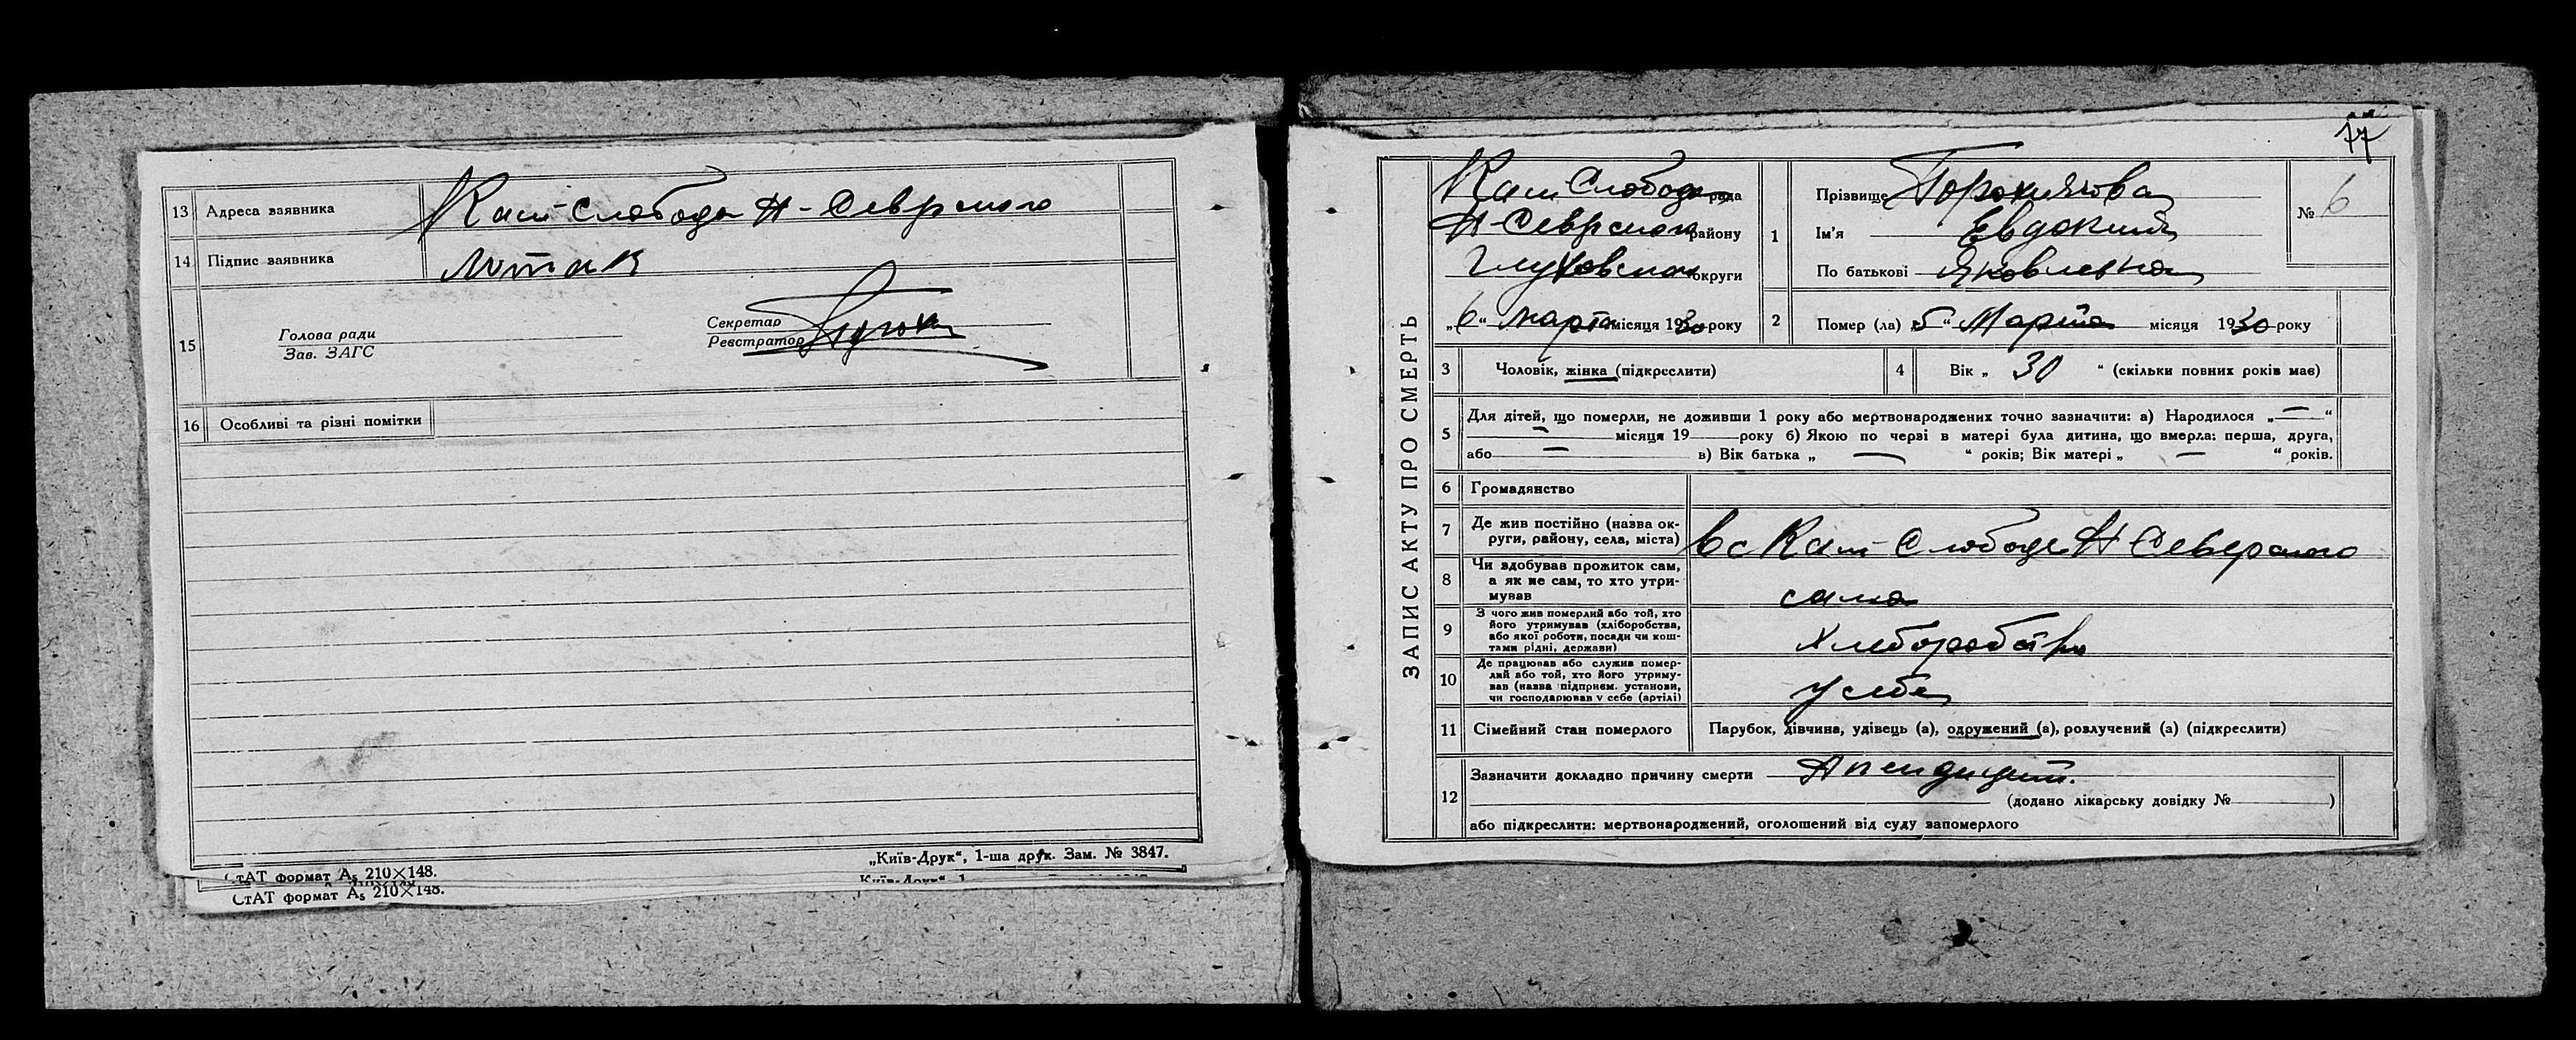 13 Адреса заявника Кам-Слобода Н-Севрского
14 Підпис заявника Литак
15 Голова ради
Зав. ЗАГС
Секретар
Реєстратор
16 Особливі та різні помітки
„Київ-Друк“, 1-ша друк. Зам. № 3847.
СтАТ формат А₅ 210×148.
СтАТ формат А₅ 210×148.
77
ЗАПИС АКТУ ПРО СМЕРТЬ
Кам Слобода рада
Н-Севрского району
Глуховской округи
„6“ марта місяця 1930 року
1 Прізвище
Ім'я Евдокия
По батькові Яковлевна
№ 6
2 Помер (ла) „5“ Марта місяця 1930 року
3 Чоловік, жінка (підкреслити)
4 Вік „ 30 “ (скільки повних років має)
5 Для дітей, що померли, не доживши 1 року або мертвонароджених точно зазначити: а) Народилося „—“
— місяця 19 року б) Якою по черзі в матері була дитина, що вмерла: перша, друга,
або — в) Вік батька „ — “ років; Вік матері „ — “ років.
6 Громадянство
7 Де жив постійно (назва ок-
руги, району, села, міста) в с Кам Слободе Н Северского
8 Чи здобував прожиток сам,
а як не сам, то хто утри-
мував сама
9 З чого жив померлий або той, хто
його утримував (хліборобства,
або якої роботи, посади чи кош-
тами рідні, держави) Хлеборобство
10 Де працював або служив помер-
лий або той, хто його утриму-
вав (назва підприєм. установи,
чи господарював у себе (артілі) У себе
11 Сімейний стан померлого Парубок, дівчина, удівець (а), одружений (а), розлучений (а) (підкреслити)
12 Зазначити докладно причину смерти Апендицит.
(додано лікарську довідку № )
або підкреслити: мертвонароджений, оголошений від суду запомерлого